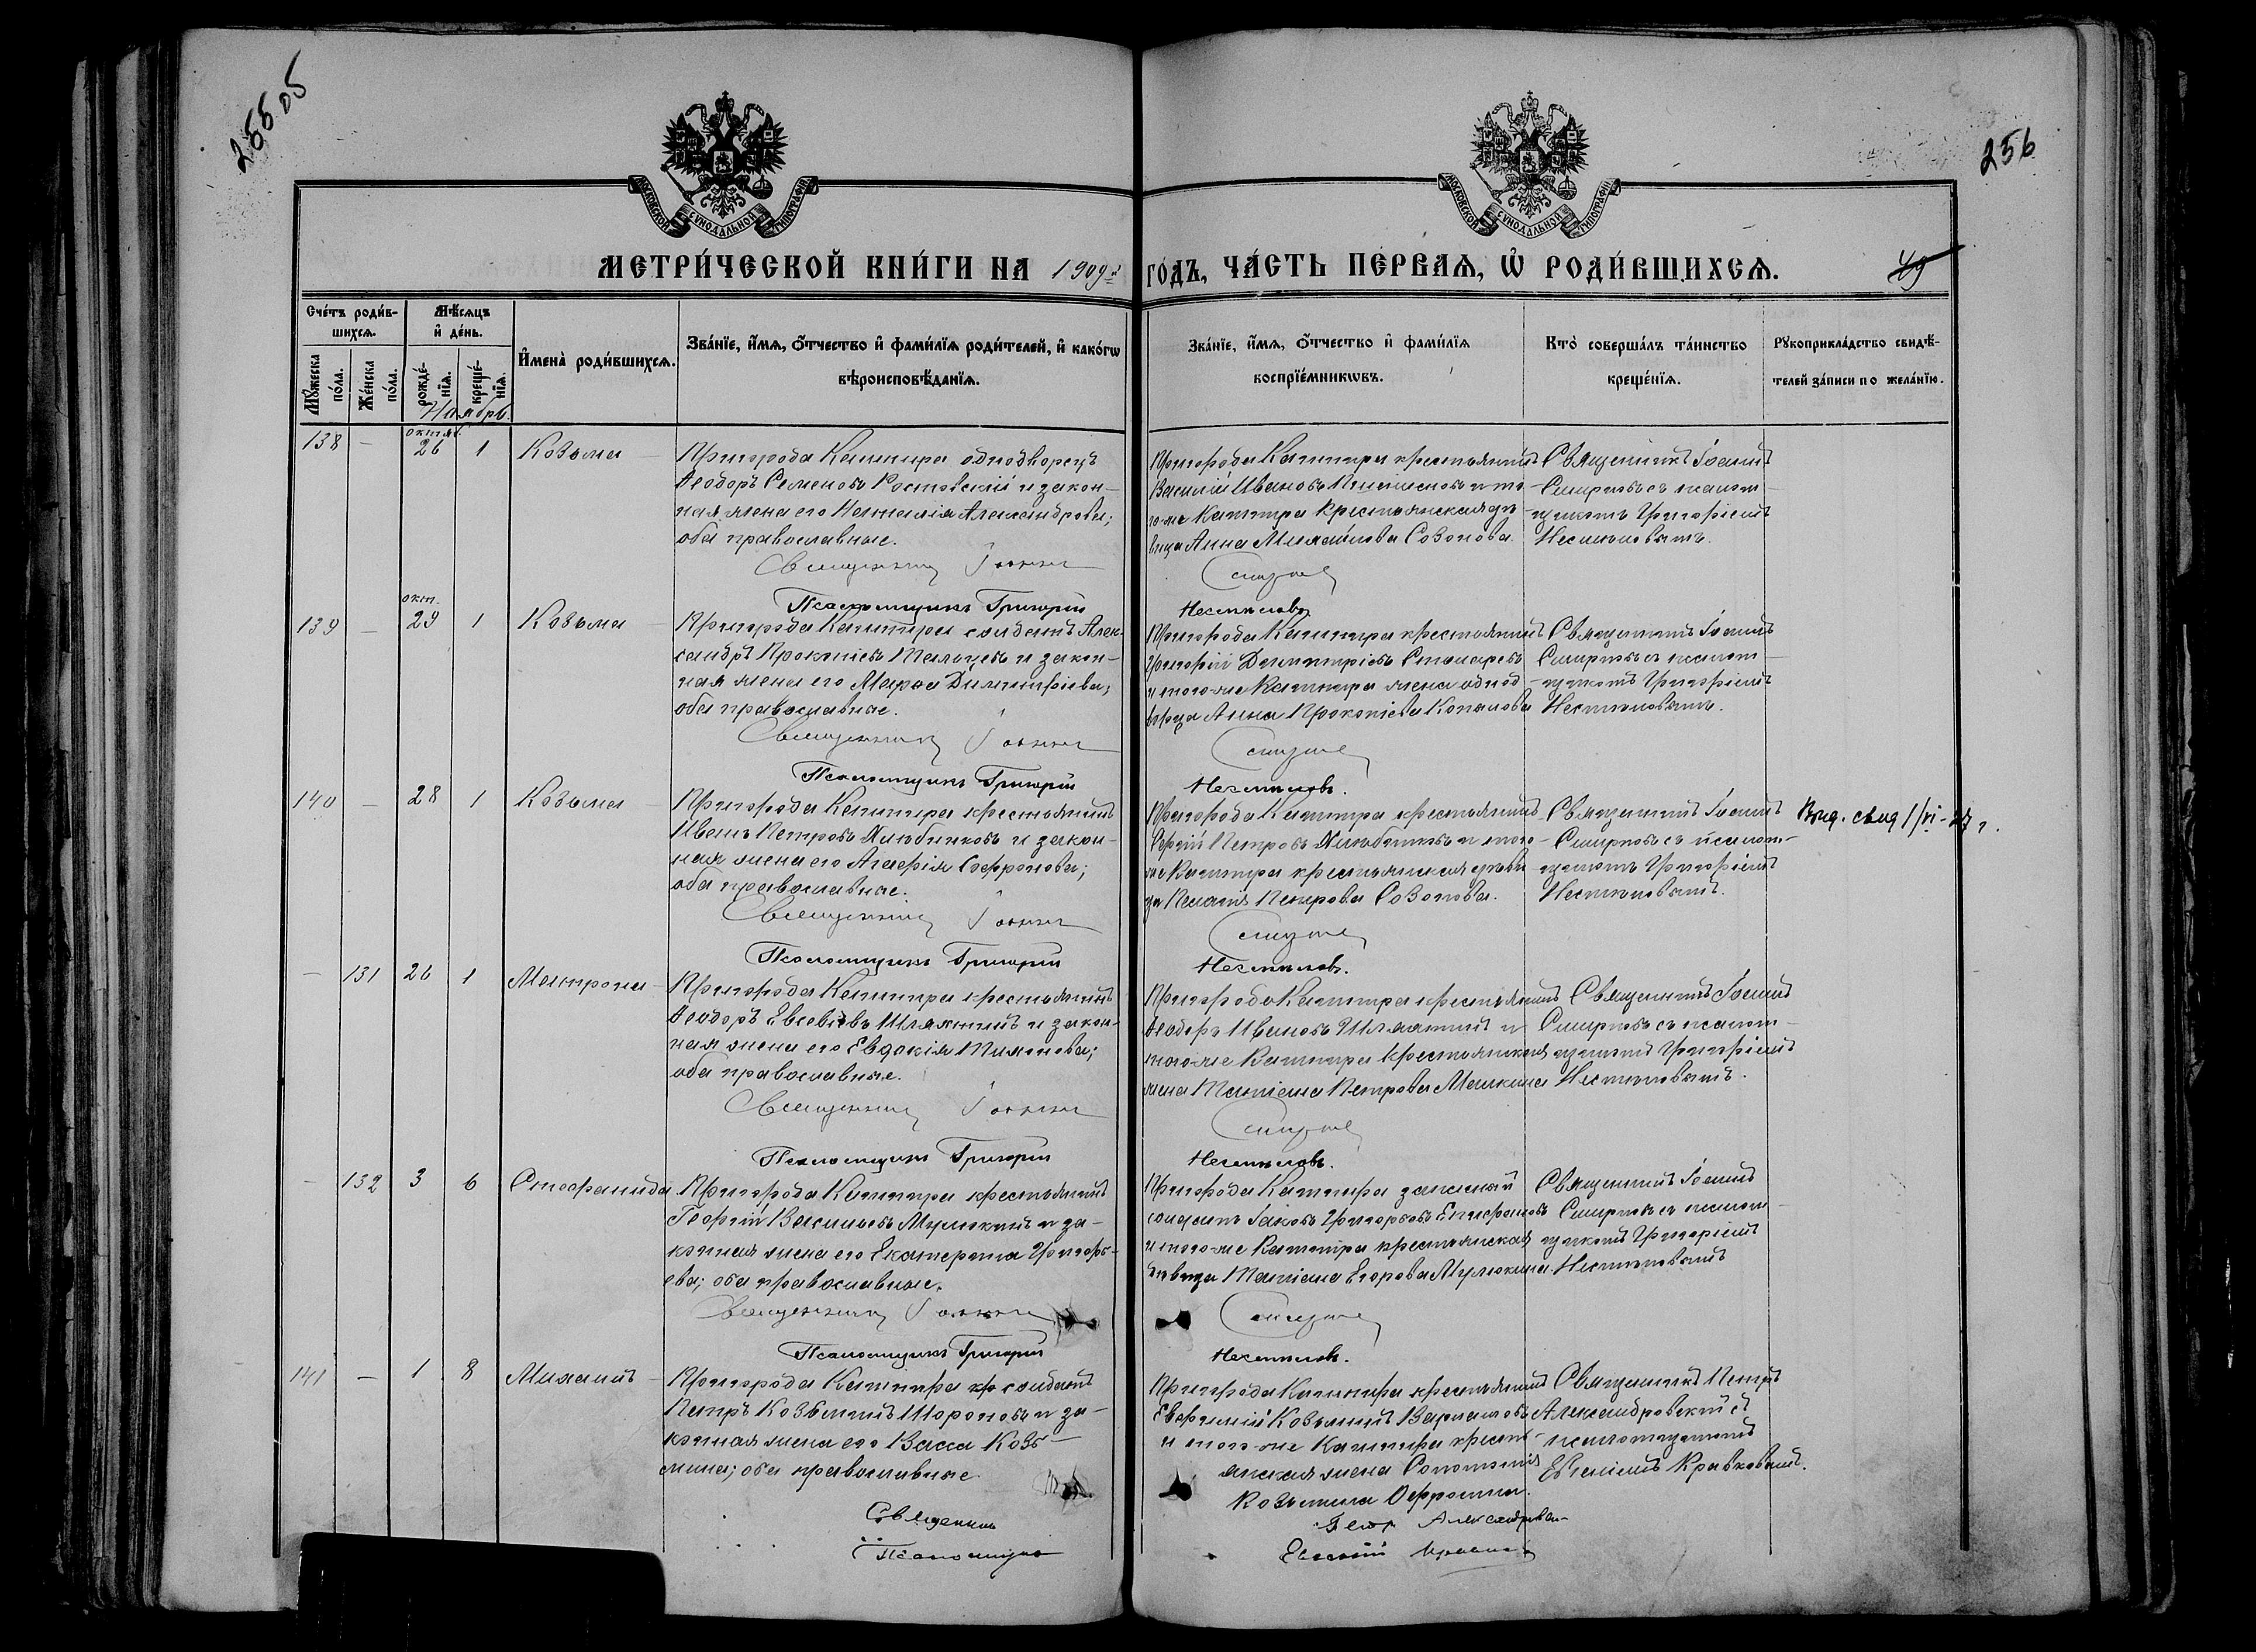 255 об
256
МОСКОВСКОЙ СѴНОДАЛЬНОЙ ТИПОГРАФІИ
МОСКОВСКОЙ СѴНОДАЛЬНОЙ ТИПОГРАФІИ
МЕТРИ́ЧЕСКОЙ КНИ́ГИ НА 1909й
ГО́ДЪ, ЧА́СТЬ ПЕ́РВАѦ, Ѽ РОДИ́ВШИХСѦ.
49
Сче́тъ роди́в-
шихсѧ.
Мѣ́сѧцъ
и҆ де́нь.
Мꙋ́жеска
по́ла.
Же́нска
по́ла.
рожде́-
нїѧ.
креще́-
нїѧ.
И҆мена̀ роди́вшихсѧ.
Зва́нїе, и҆́мѧ, ѻ҆́тчество и҆ фами́лїѧ роди́телей, и҆ како́гѡ
вѣроисповѣ́данїѧ.
Зва́нїе, и҆́мѧ, ѻ҆́тчество и҆ фами́лїѧ
воспрїе́мникѡвъ.
Кто̀ соверша́лъ та́инство
креще́нїѧ.
Рꙋкоприкла́дство свидѣ́-
телей за́писи по жела́нїю.
Ноябрь.
138 — октяб. 26 1 Козьма
Пригорода Каштира однодворецъ
Ѳеодоръ Семеновъ Ростовскій и закон-
ная жена его Наталія Александрова;
оба православные.
Священникъ Іоаннъ
Псаломщикъ Григорій
Пригорода Каштира крестьянинъ
Василій Ивановъ и то-
го-же Каштира крестьянская дѣ-
вица Анна Михайлова Созонова.
Смирновъ
Нестиловъ
Священникъ Іоаннъ
Смирновъ съ псалом-
щикомъ Григоріемъ
Нестиловымъ.
139 — окт. 29 1 Козьма
Пригорода Каштира солдатъ Алек-
сандръ Прокопіевъ Мальцевъ и закон-
ная жена его Марѳа Димитріева;
оба православные.
Священникъ Іоаннъ
Псаломщикъ Григорій
Пригорода Каштира крестьянинъ
Григорій Димитріевъ Столяровъ
и того-же Каштира жена однод-
ворца Анна Прокопіева Копылова
Смирновъ
Нестиловъ.
Священникъ Іоаннъ
Смирновъ съ псалом-
щикомъ Григоріемъ
Нестиловымъ.
140 — 28 1 Козьма
Пригорода Каштира крестьянинъ
Иванъ Петровъ Хлюбниковъ и закон-
ная жена его Агафія Софронова;
оба православные.
Священникъ Іоаннъ
Псаломщикъ Григорій
Пригорода Каштира крестьянинъ
Сергій Петровъ и того-
же Каштира крестьянская дѣви-
ца Пелагія Петрова Созонова.
Смирновъ
Нестиловъ.
Священникъ Іоаннъ
Смирновъ съ псалом-
щикомъ Григоріемъ
Нестиловымъ.
Выд. свид 1/VI-27 г.
— 131 26 1 Матрона
Пригорода Каштира крестьянинъ
Ѳеодоръ Евсевіевъ Шляхтинъ и закон-
ная жена его Евдокія Пименова;
оба православные.
Священникъ Іоаннъ
Псаломщикъ Григорій
Пригорода Каштира крестьянинъ
Ѳеодоръ Ивановъ Шляхтинъ и
того-же Каштира крестьянская
жена Татіана Петрова Малкина
Смирновъ
Нестиловъ.
Священникъ Іоаннъ
Смирновъ съ псалом-
щикомъ Григоріемъ
Нестиловымъ.
— 132 3 6 Стефанида
Пригорода Каштира крестьянинъ
Георгій Васильевъ Мулюкинъ и за-
конная жена его Екатерина Григорь-
ева; оба православные.
Священникъ Іоаннъ
Псаломщикъ Григорій
Пригорода Каштира запасный
солдатъ Іаковъ Григорьевъ Епифановъ
и того-же Каштира крестьянская
дѣвица Татіана Егорова Мулюкина.
Смирновъ
Нестиловъ.
Священникъ Іоаннъ
Смирновъ съ псалом-
щикомъ Григоріемъ
Нестиловымъ
141 — 1 8 Михаилъ
Пригорода Каштира кр солдатъ
Петръ Козьминъ Шороховъ и за-
конная жена его Васса Козь-
мина; оба православные
Священникъ
Псаломщикъ
Пригорода Каштира крестьянинъ
Евфимій Козьминъ Варламовъ
и того-же Каштира кресть-
янская жена Соломонія
Козьмина
Петръ Александровскій
Евгеній
Священникъ Петръ
Александровскій съ
псаломщикомъ
Евгеніемъ Кравковымъ.